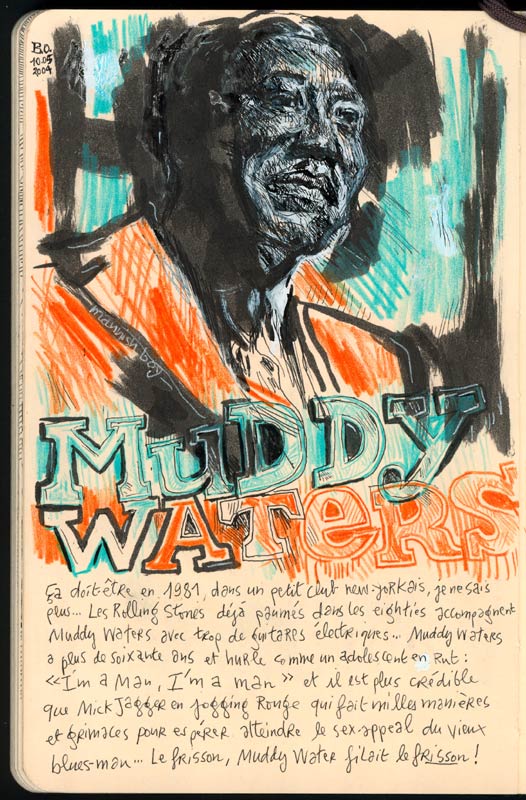 B.O.
10.05
2004
MUDDY
WATERS
ça doit-être en 1981, dans un petit club new-yorkais, je ne sais
plus... Les Rolling Stones déjà paumés dans les eighties accompagnent
Muddy Waters avec trop de guitares électriques... Muddy Waters
a plus de soixante ans et hurle comme un adolescent en Rut :
«I'm a Man, I'm a man» et il est plus crédible
que Mick Jagger en jogging Rouge qui fait milles manières
et grimaces pour espérer atteindre le sex-appeal du vieux
blues-man... Le frisson, Muddy Water filait le frisson !